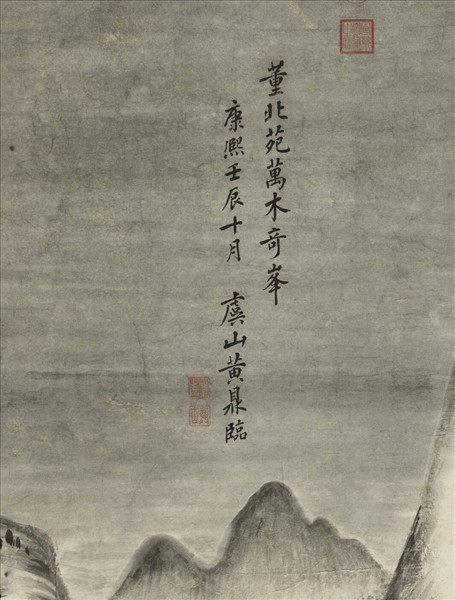 董北苑萬木奇峯
康熙壬辰十月 虞山黃鼎臨